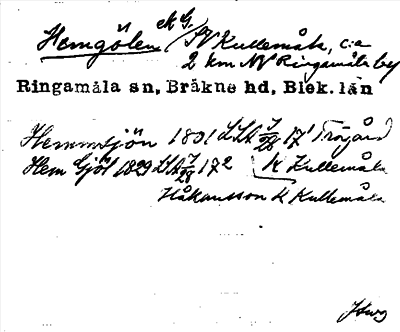 Hemgölen ek G. SV Kullemåla, c:a
2 km NV Ringamåla by
Ringamåla sn, Bräkne hd, Blek. län
Hemmsjön 1801 LSA 28 17¹
Hem Gjöl 1829 LSA 28 17² K Kullemåla
Håkansson K Kullemåla